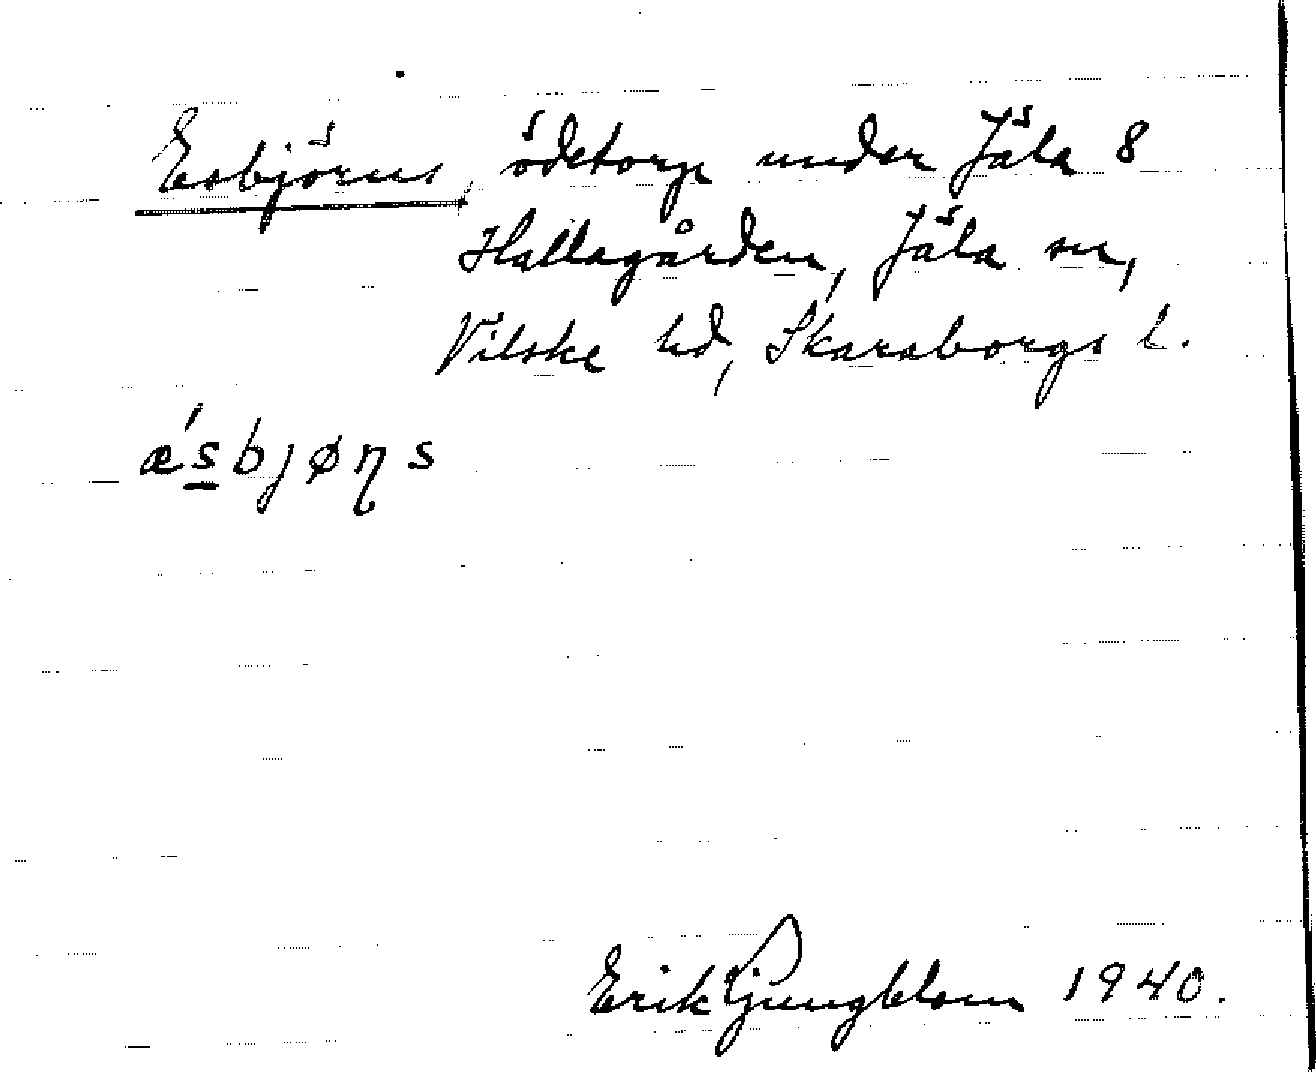 Esbjörns, ödetorp under Jäla 8
Hallagården, Jäla sn,
Vilske hd, Skaraborgs l.
ǽsbjøɳs
Erik Ljungblom 1940.